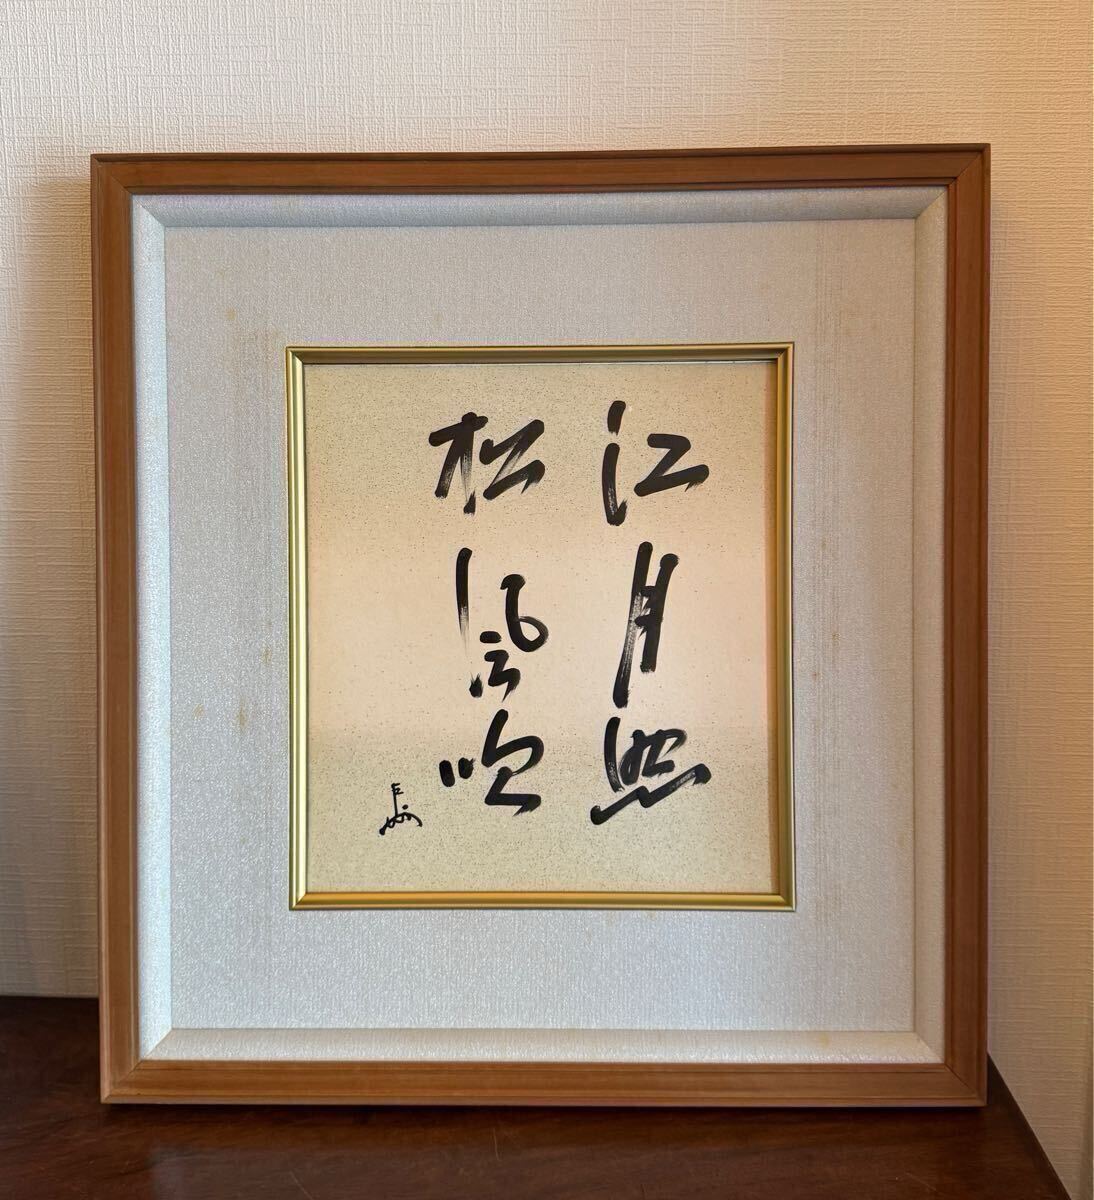 江月照
松風吹